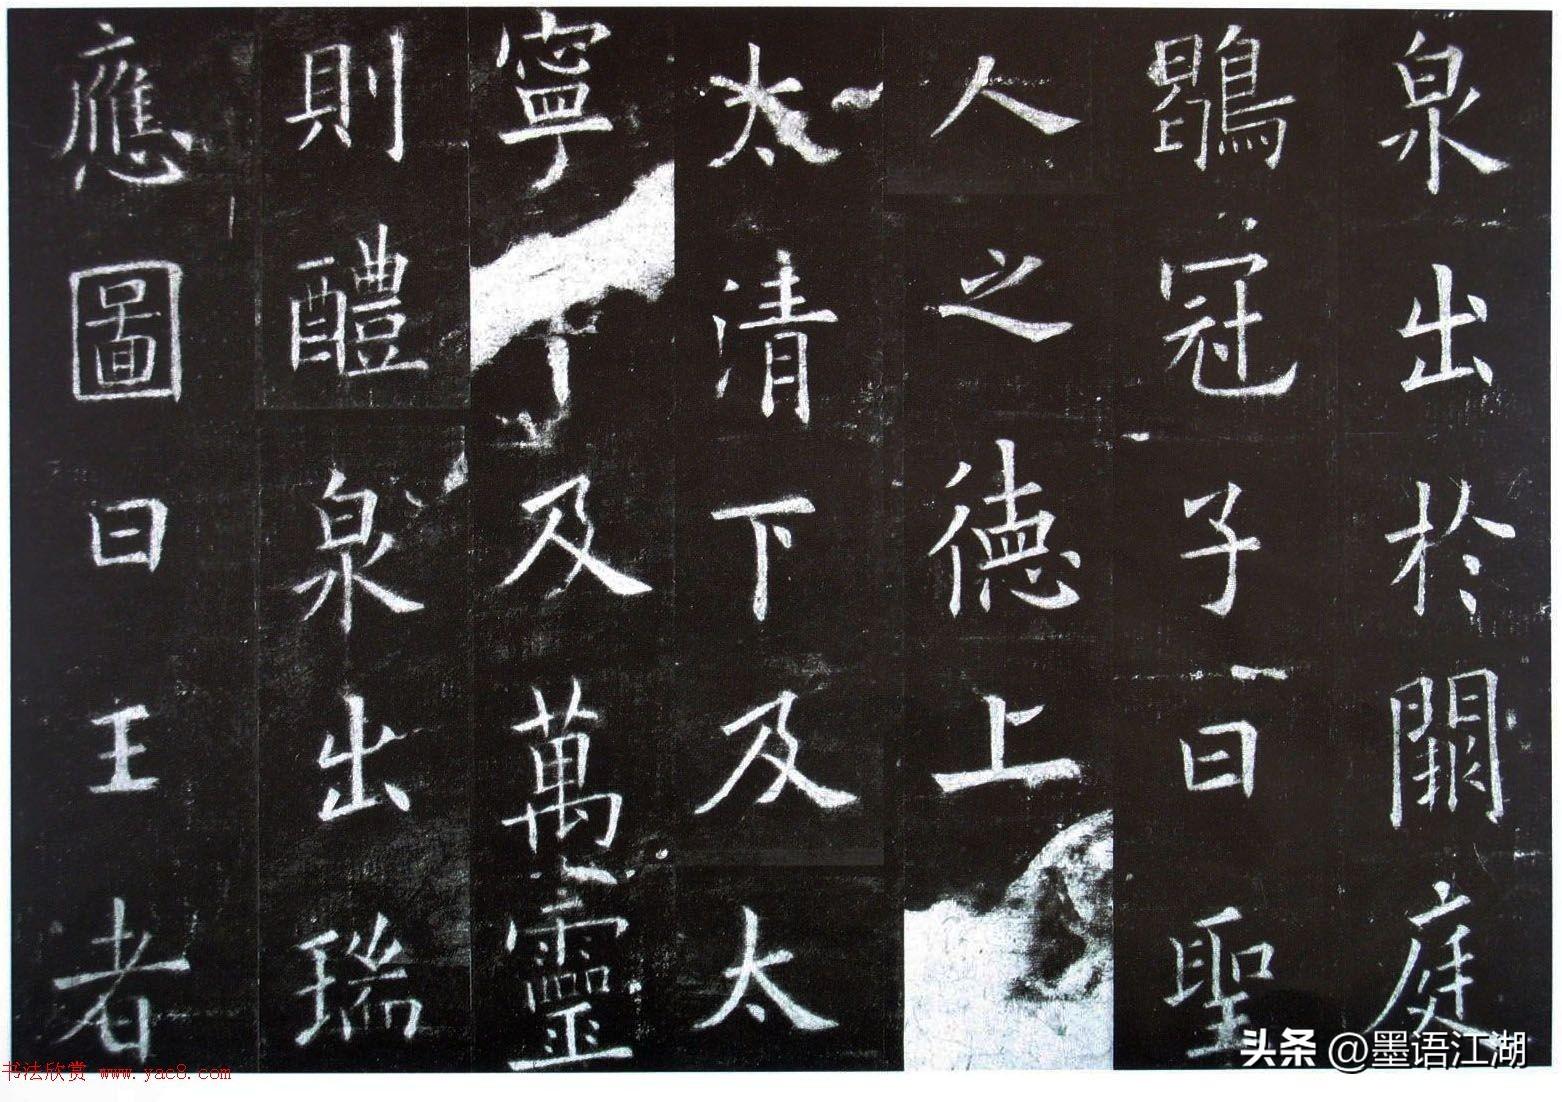 泉出於闕庭
鶡冠子曰聖
人之德上
太清下及太
寧下及萬靈
則醴泉出瑞
應圖曰王者
头条 @墨语江湖
书法欣赏 www.yac8.com